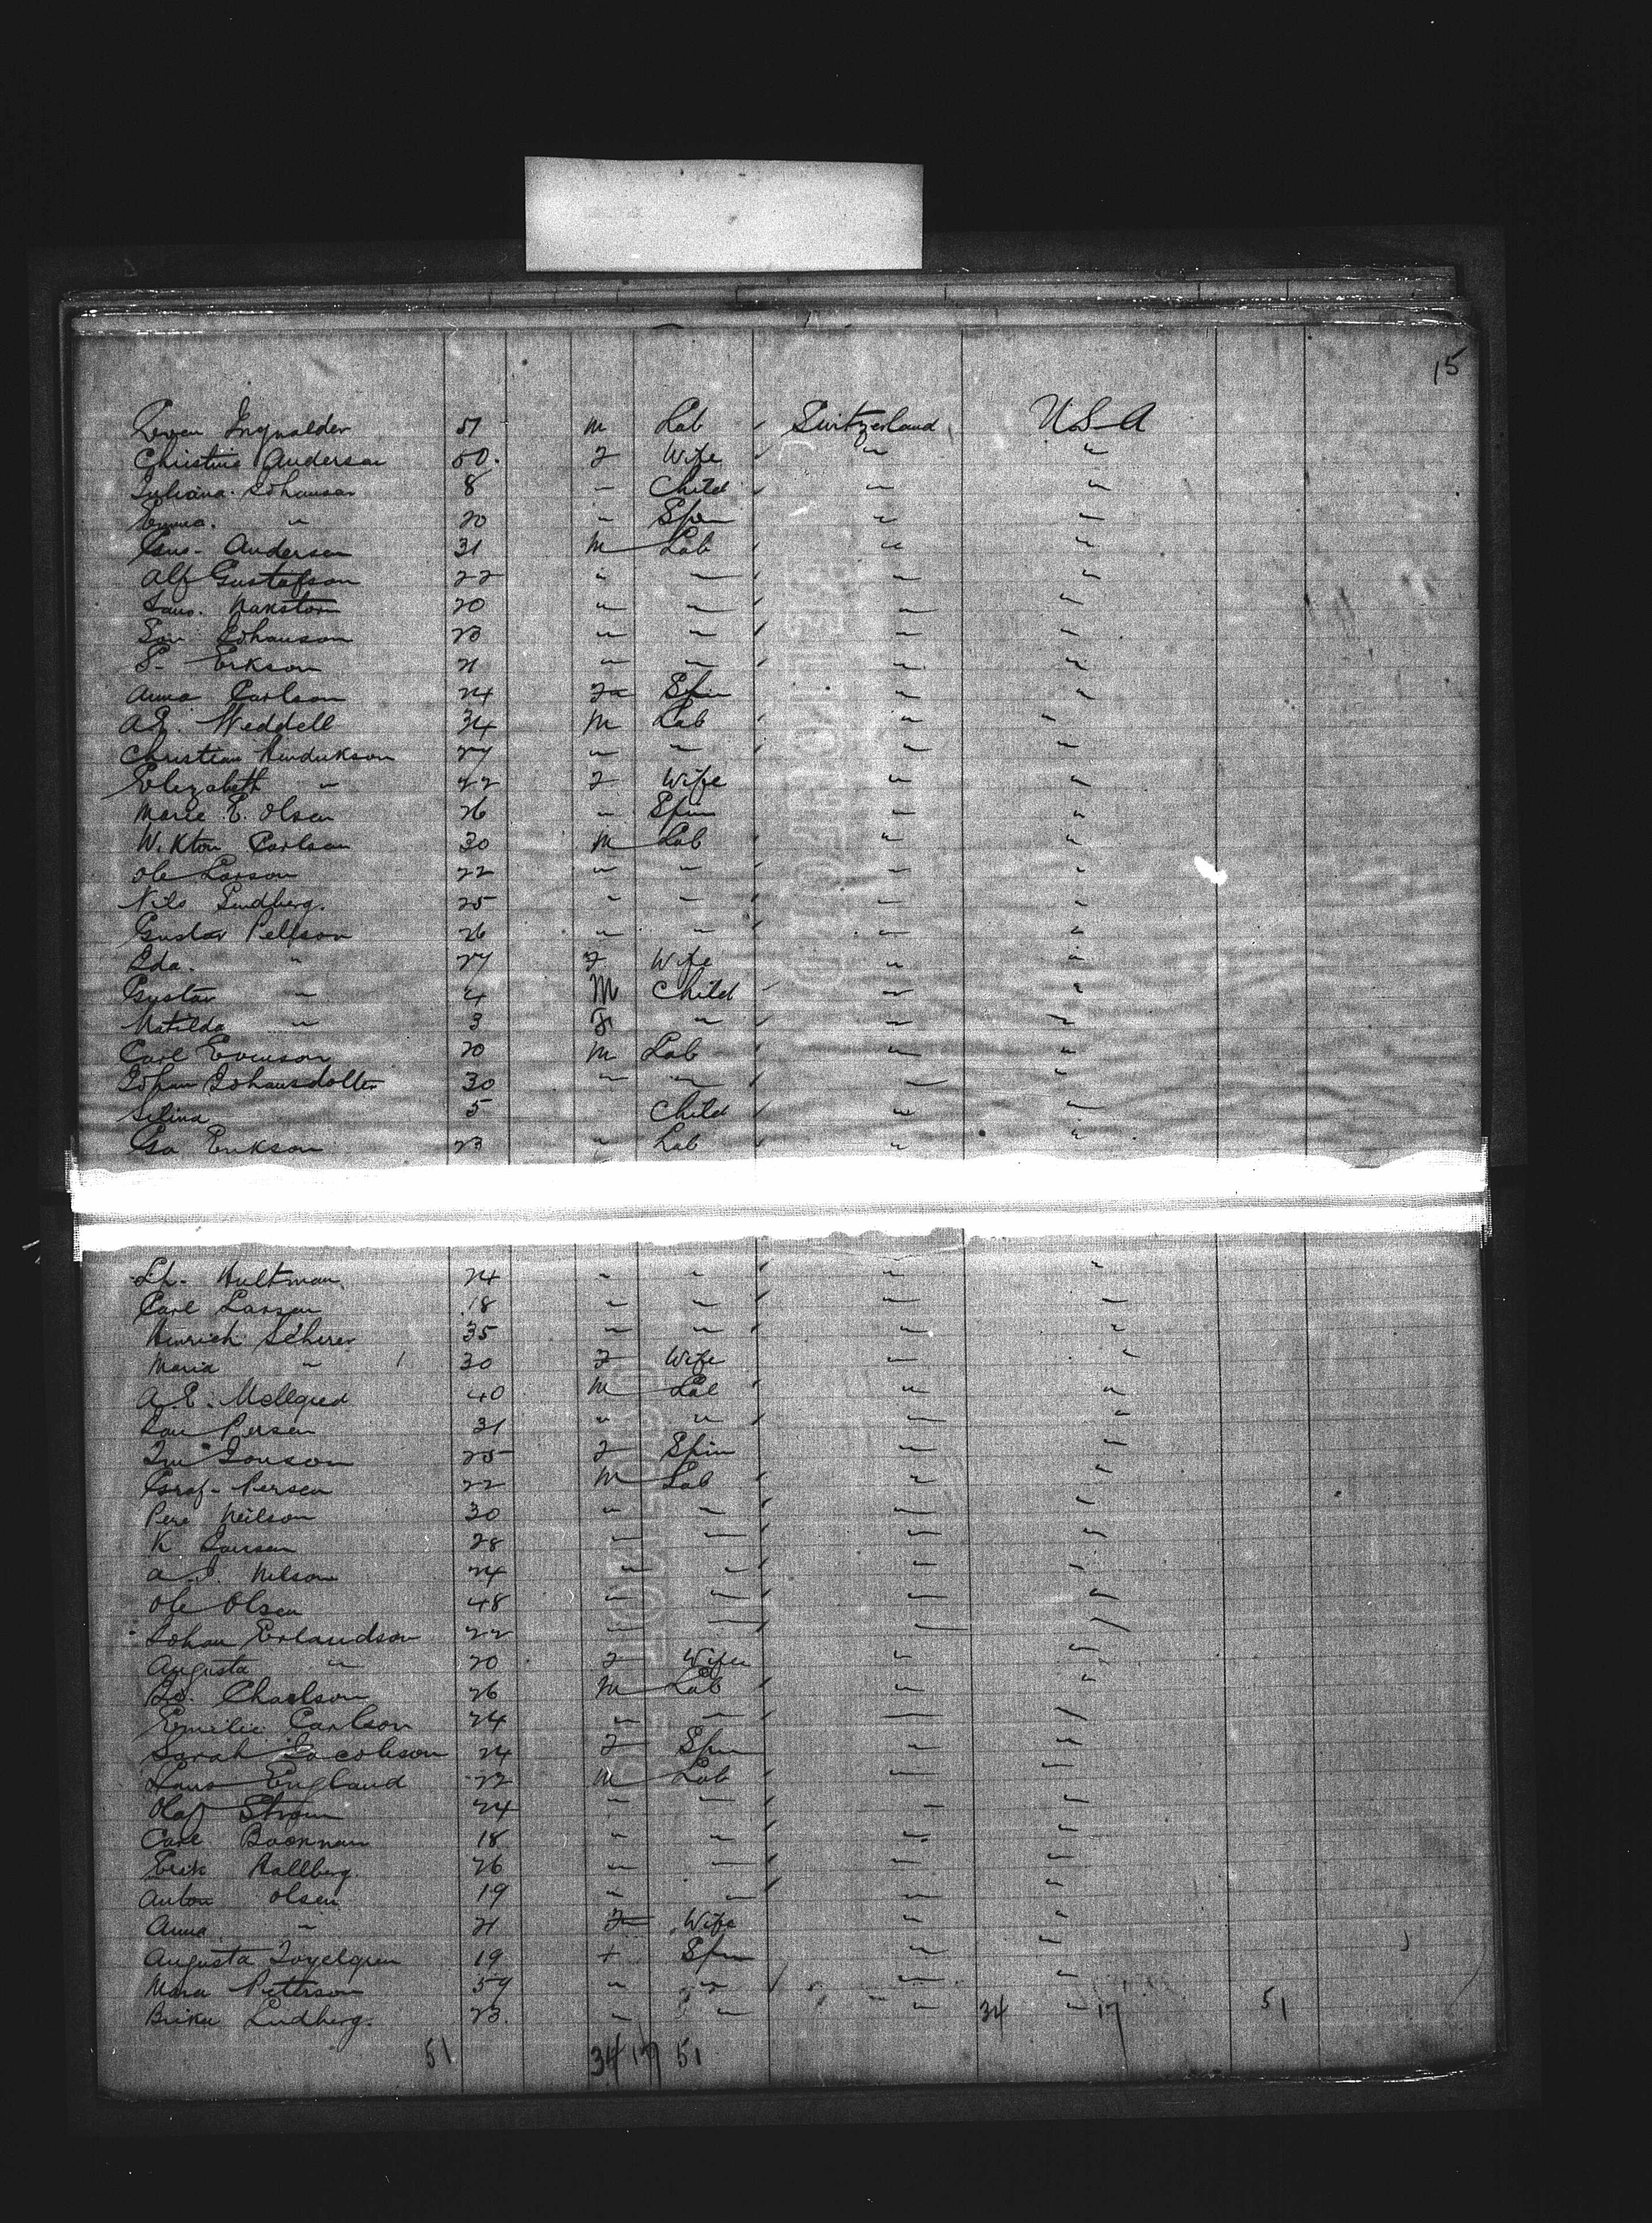 15
Ingvalder 51 M Lab Switzerland U.S.A
Christine Anderson 50. F Wife " "
Juliana Johanson 8 " Child " "
Emma. " 20 " Spin " "
Gus- Anderson 31 M Lab " "
Alf Gustafson 22 " " " "
20 " " " "
Johanson 23 " " " "
Erikson 21 " " " "
Anna Carlson 24 F Spin " "
A.E. Weddell 34 M Lab " "
Christian Hendrikson 27 " " " "
Elizabeth " 22 F Wife " "
Marie E. Olsen 26 " Spin " "
Wikton Carlson 30 M Lab " "
Ole Larson 22 " " " "
Nils Lindberg. 25 " " " "
Gustav Pellson 26 " " " "
Ida. " 27 F Wife " "
Gustav " 4 M Child " "
Matilda " 3 F " " "
Carl Evenson 20 M Lab " "
Johan Johansdotter 30 " " " "
Selina 5 Child " "
Erikson 23 " Lab " "
Hultman 24 " " " "
Carl Larsen 18 " " " "
Heinrich Scherer 35 " " " "
Maria " 30 F Wife " "
A.E. Mellqred 40 M Lab " "
Persen 31 " " " "
Jonson 25 F Spin " "
Persen 22 M Lab " "
Pere Neilson 30 " " " "
K Jansen 28 " " " "
A.J. Nelson 24 " " " "
Ole Olsen 48 " " " "
Johan Erlandson 22 " " " "
Augusta " 20 F Wife " "
Charlson 26 M Lab " "
Emilie Carlson 24 " " " "
Sarah Jacobson 24 F Spin " "
Hans England 22 M Lab " "
Olaf Strom 24 " " " "
Carl Bookman 18 " " " "
Erik Hallberg. 26 " " " "
Anton Olsen 19 " " " "
Anna " 21 F Wife " "
Augusta 19 + Spin " "
Peterson 59 " " " "
Lindberg. 23. " " " 34 " 17 51
51 34 17 51